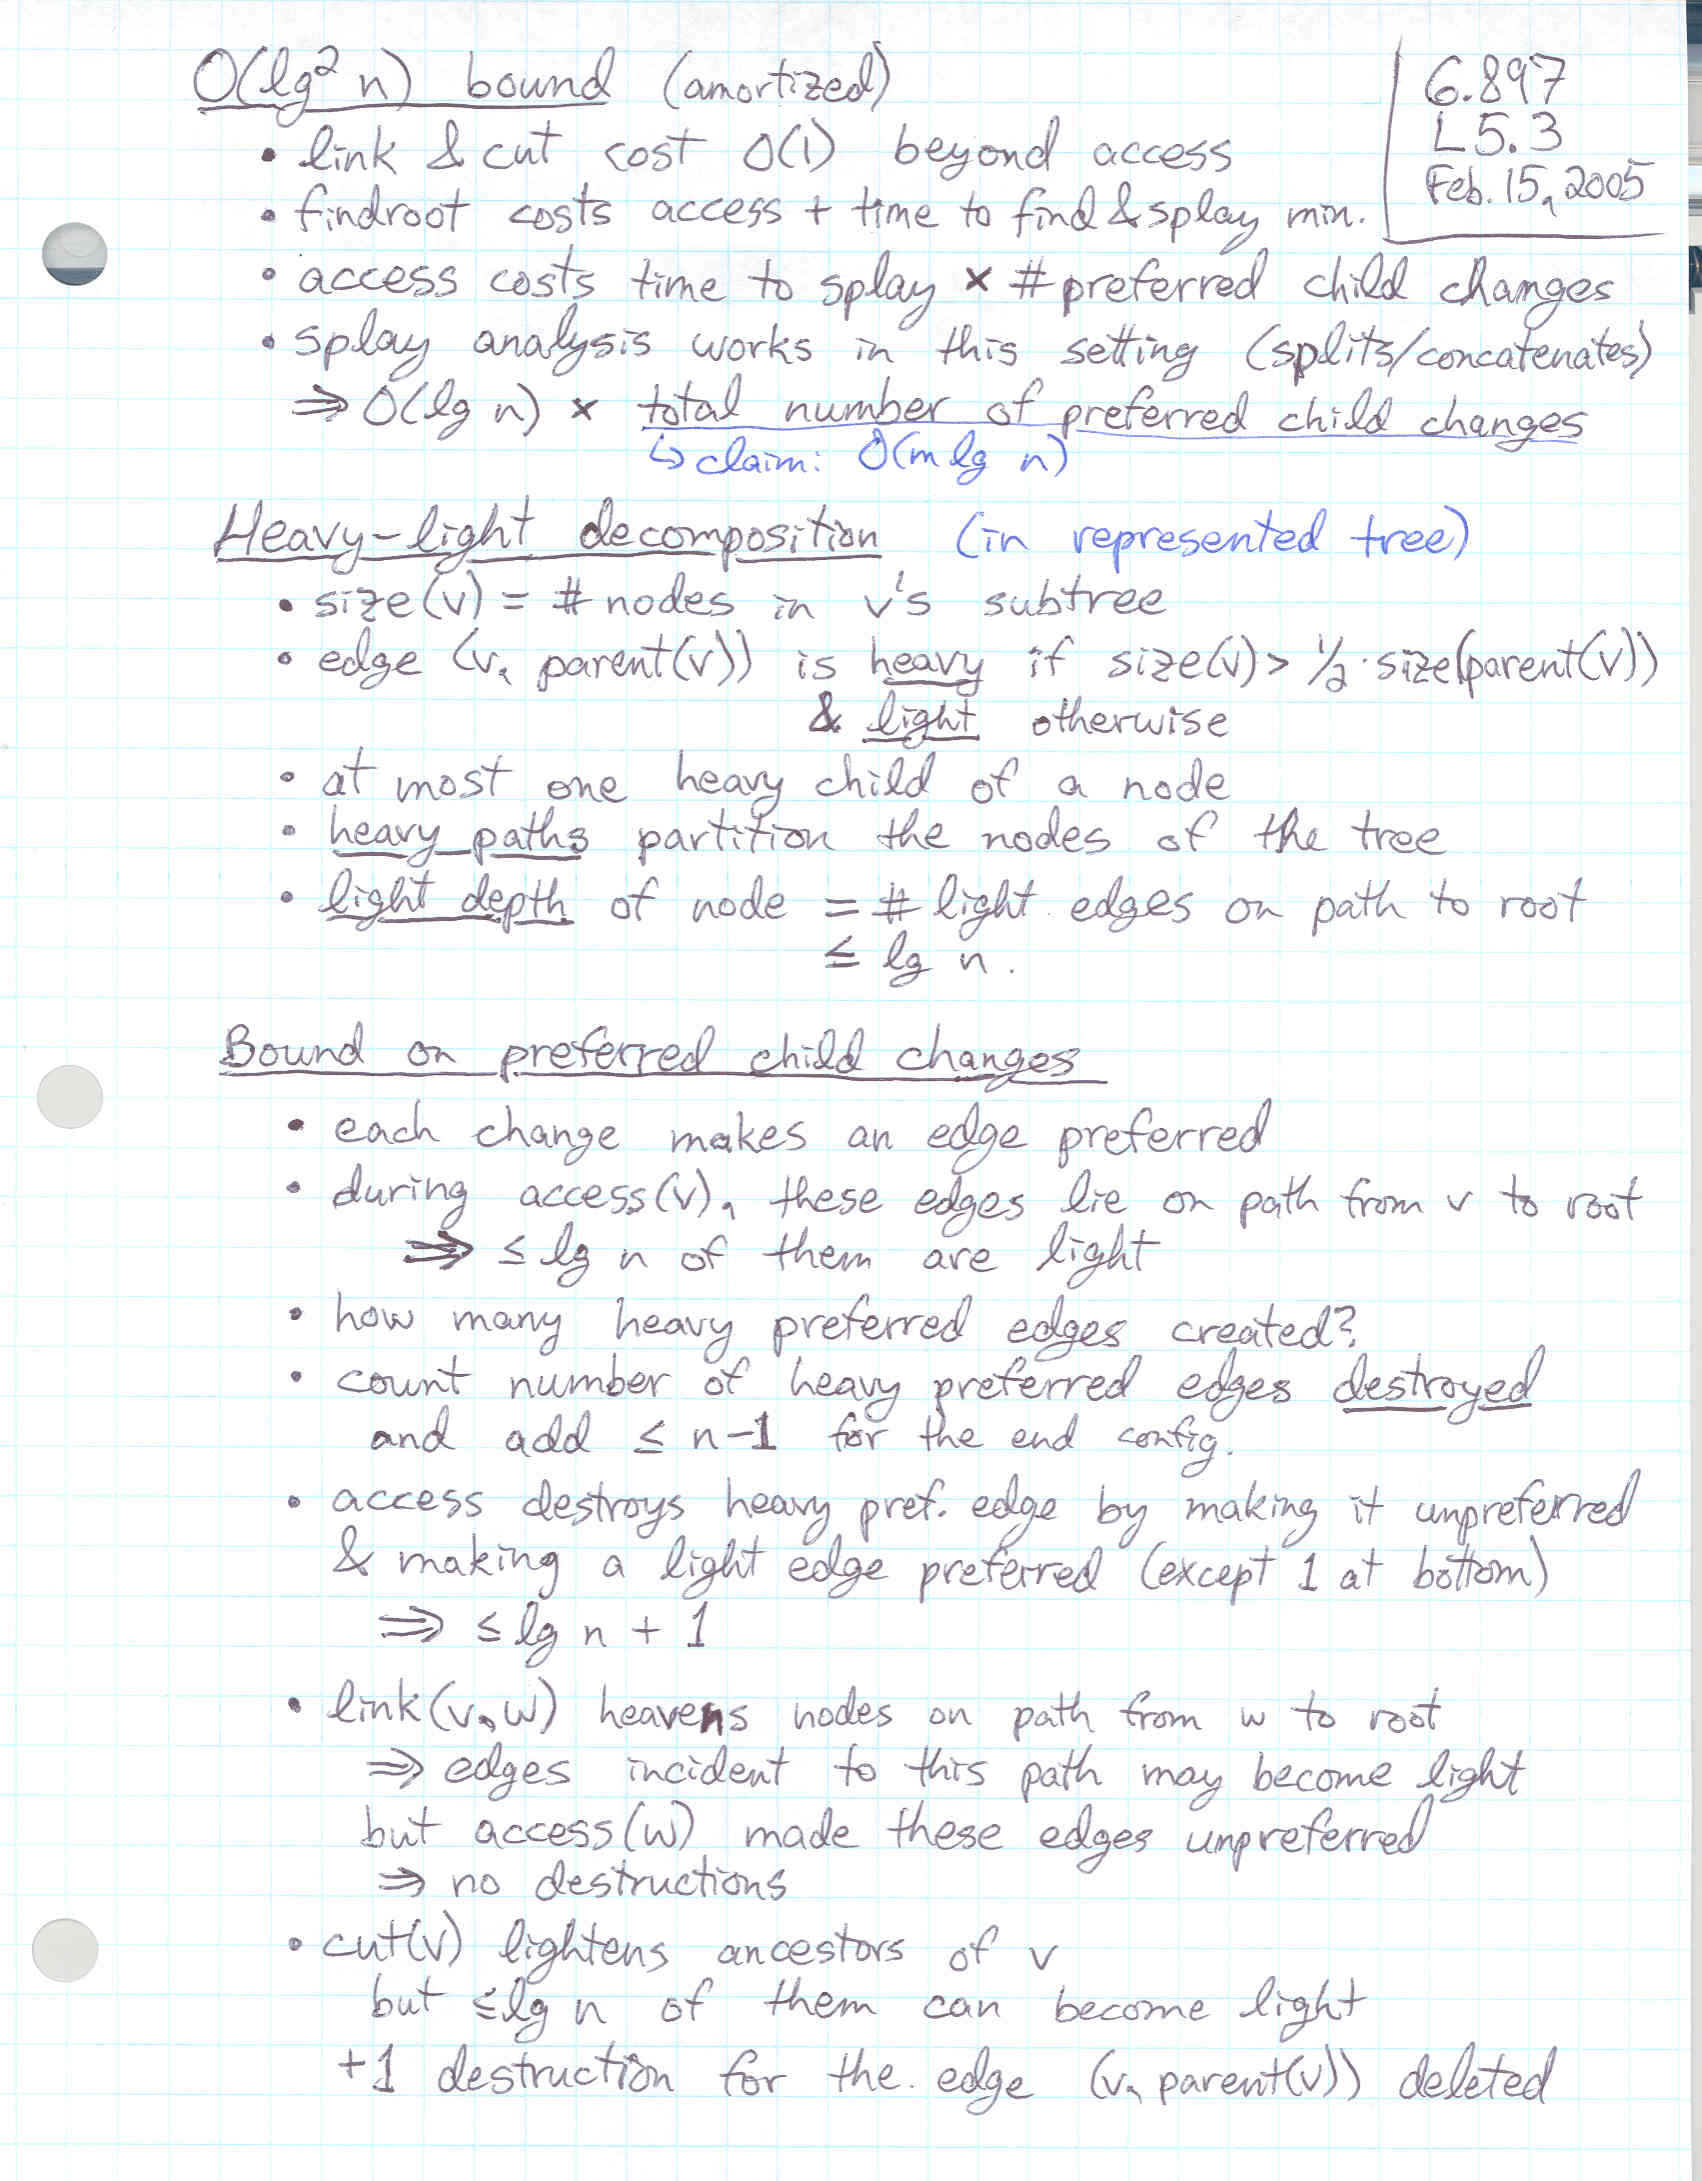 O(lg² n) bound (amortized)
6.897
L5.3
Feb. 15, 2005
• link & cut cost O(1) beyond access
• findroot costs access + time to find & splay min.
• access costs time to splay × # preferred child changes
• splay analysis works in this setting (splits/concatenates)
⇒ O(lg n) × total number of preferred child changes
↳ claim: O(m lg n)
Heavy-light decomposition (in represented tree)
• size(v) = # nodes in v's subtree
• edge (v, parent(v)) is heavy if size(v) > 1/2 · size(parent(v))
& light otherwise
• at most one heavy child of a node
• heavy paths partition the nodes of the tree
• light depth of node = # light edges on path to root
≤ lg n.
Bound on preferred child changes
• each change makes an edge preferred
• during access(v), these edges lie on path from v to root
⇒ ≤ lg n of them are light
• how many heavy preferred edges created?
• count number of heavy preferred edges destroyed
and add ≤ n-1 for the end config.
• access destroys heavy pref. edge by making it unpreferred
& making a light edge preferred (except 1 at bottom)
⇒ ≤ lg n + 1
• link(v,w) heavens nodes on path from w to root
⇒ edges incident to this path may become light
but access(w) made these edges unpreferred
⇒ no destructions
• cut(v) lightens ancestors of v
but ≤ lg n of them can become light
+1 destruction for the edge (v, parent(v)) deleted